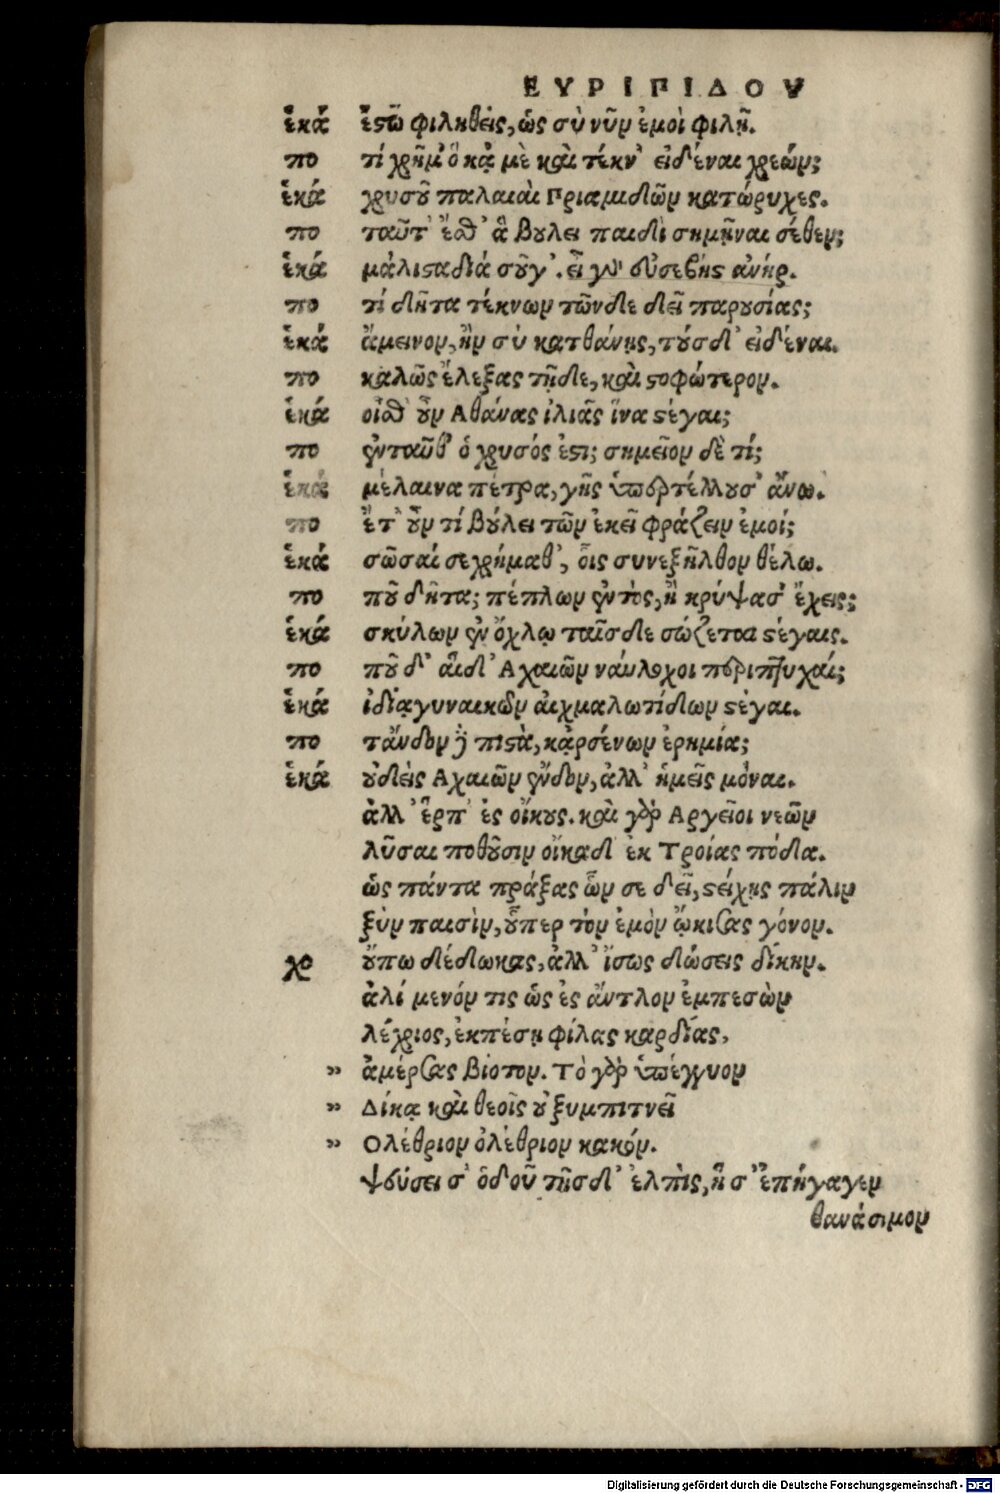 ΕΥΡΙΠΙΔΟΥ
ἑκά ἔστω φιληθεὶς, ὡς σὺ νῦν ἐμοὶ φιλῇ.
πο τί χρῆμ' ὃ κᾀμὲ καὶ τέκν' εἰδέναι χρεών;
ἑκά χρυσοῦ παλαιαὶ Πριαμιδῶν κατώρυχες.
πο ταῦτ' ἔσθ' ἃ βούλει παιδὶ σημῆναι σέθεν;
ἑκά μάλιστα διά σοῦγ'. εἶ γὰρ εὐσεβὴς ἀνήρ.
πο τί δῆτα τέκνων τῶνδε δεῖ παρουσίας;
ἑκά ἄμεινον, ἢν σὺ κατθάνῃς, τούσδ' εἰδέναι.
πο καλῶς ἔλεξας τῇδε, καὶ σοφώτερον.
ἑκά οἶσθ' οὖν Αθάνας ἰλιᾶς ἵνα στέγαι;
πο ἐνταῦθ' ὁ χρυσός ἐστι; σημεῖον δὲ τί;
ἑκά μέλαινα πέτρα, γῆς ὑπερτέλλουσ' ἄνω.
πο ἔτ' οὖν τί βούλει τῶν ἐκεῖ φράζειν ἐμοί;
ἑκά σῶσαί σε χρήμαθ', οἷς συνεξῆλθον θέλω.
πο ποῦ δῆτα; πέπλων ἐντὸς, ἢ κρύψασ' ἔχεις;
ἑκά σκύλων ἐν ὄχλῳ ταῖσδε σώζεται στέγαις.
πο ποῦ δ' αἵδ' Αχαιῶν ναύλοχοι περιπτυχαί;
ἑκά ἰδίᾳ γυναικῶν αἰχμαλωτίδων στέγαι.
πο τἄνδον δὲ πιστὰ, κᾀρσένων ἐρημία;
ἑκά οὐδεὶς Αχαιῶν ἔνδον, ἀλλ' ἡμεῖς μόναι.
ἀλλ' ἕρπ' ἐς οἴκους. καὶ γὰρ Αργεῖοι νεῶν
λῦσαι ποθοῦσιν οἴκαδ' ἐκ Τροίας πόδα.
ὡς πάντα πράξας ὧν σε δεῖ, στείχῃς πάλιν
ξὺν παισὶν, οὗπερ τὸν ἐμὸν ᾤκισας γόνον.
χο οὔπω δέδωκας, ἀλλ' ἴσως δώσεις δίκην.
ἀλί μενόν τις ὡς ἐς ἄντλον ἐμπεσὼν
λέχριος, ἐκπέσῃ φίλας καρδίας,
» ἀμέρσας βίοτον. Τὸ γὰρ ὑπέγγυον
» Δίκᾳ καὶ θεοῖς οὐ ξυμπιτνεῖ
» Ολέθριον ὀλέθριον κακόν.
ψεύσει σ' ὁδοῦ τῆσδ' ἐλπὶς, ἥ σ' ἐπήγαγεν
θανάσιμον
Digitalisierung gefördert durch die Deutsche Forschungsgemeinschaft - DFG